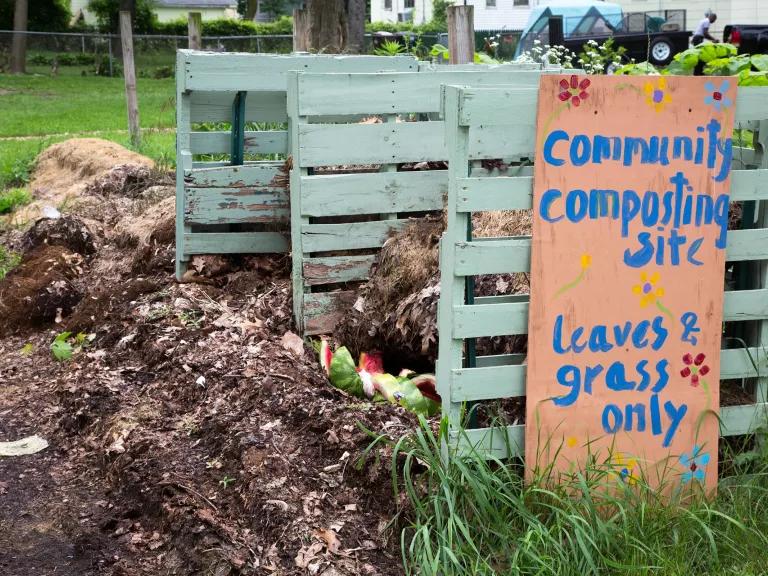 community
composting
site
leaves &
grass
only